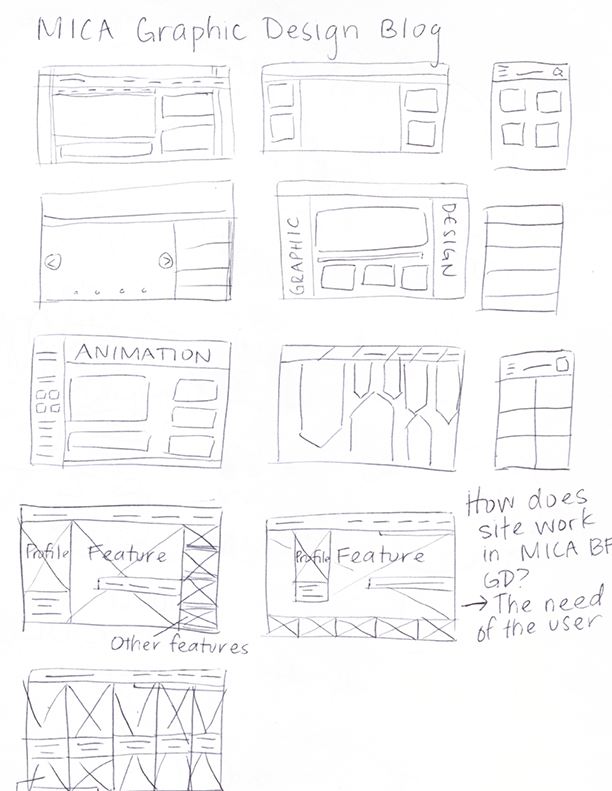 MICA Graphic Design Blog
GRAPHIC
DESIGN
ANIMATION
Profile
Feature
Other features
Profile
Feature
How does
site work
in MICA BF
GD?
→ The need
of the user